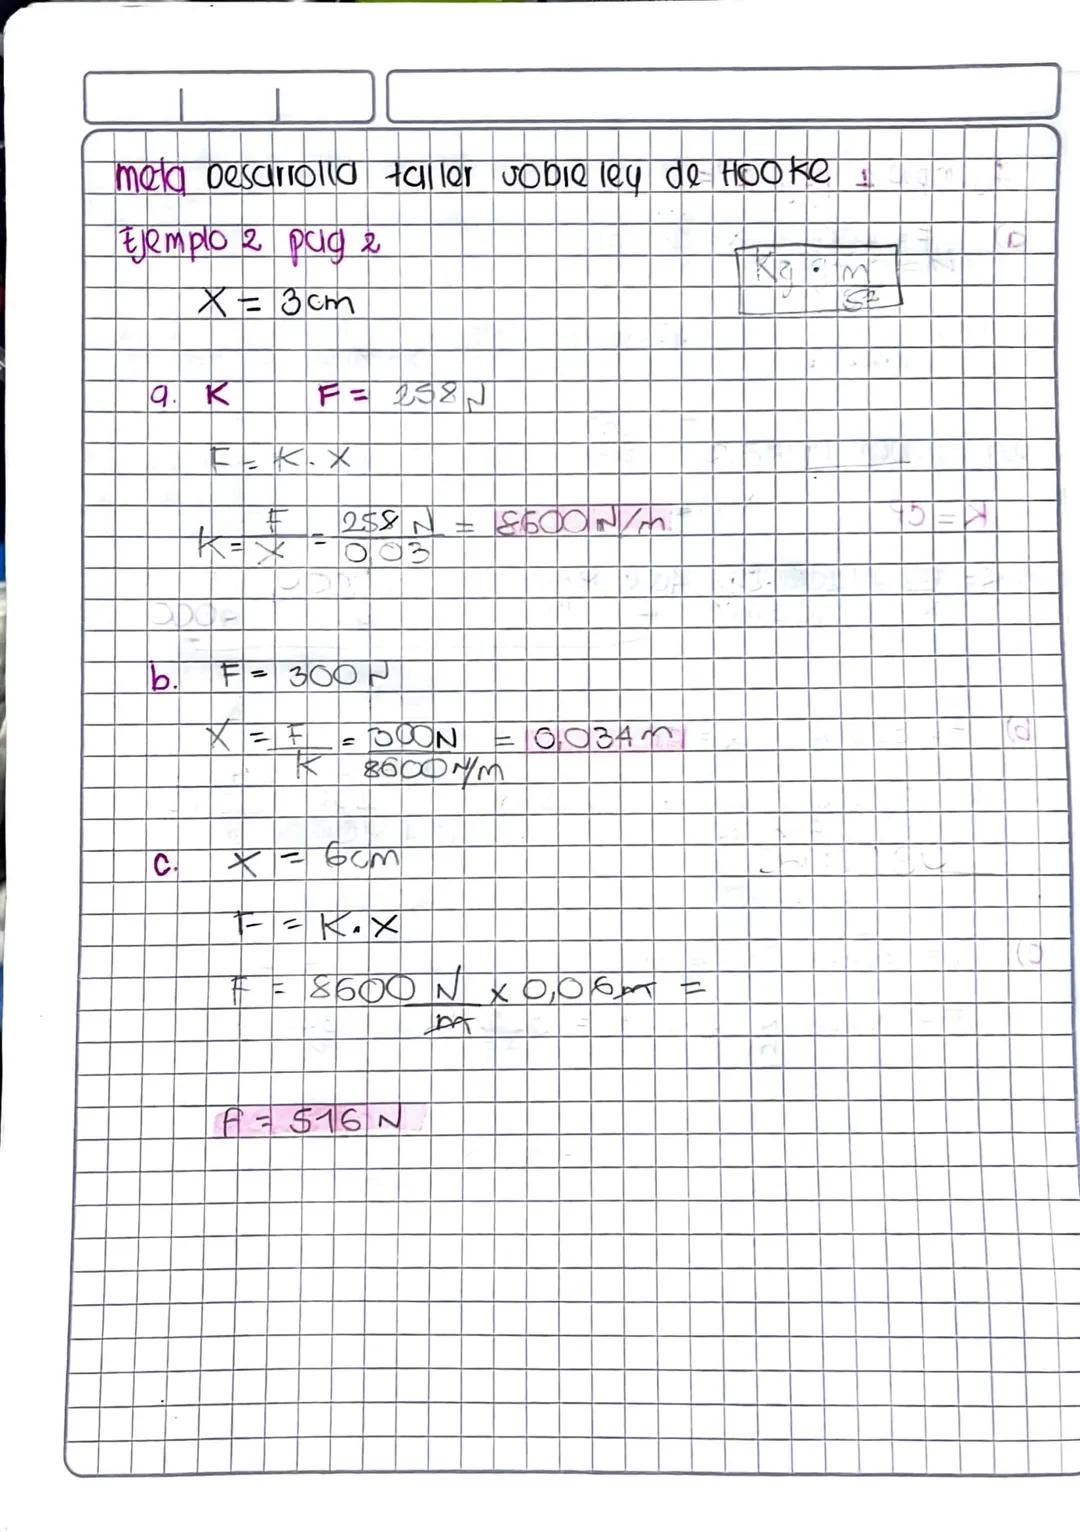 meta Desarrolla taller sobre ley de HOOKE 1
Ejemplo 2 pag 2
Kg · m
s²
X = 3cm
a. K F = 258N
F = K . X
K = F/X = 258 N/0,03 = 8600 N/m
b. F = 300 N
X = F/K = 300N/8600 N/m = 0,034 m
c. X = 6cm
F = K . X
F = 8600 N/m x 0,06m =
F = 516 N